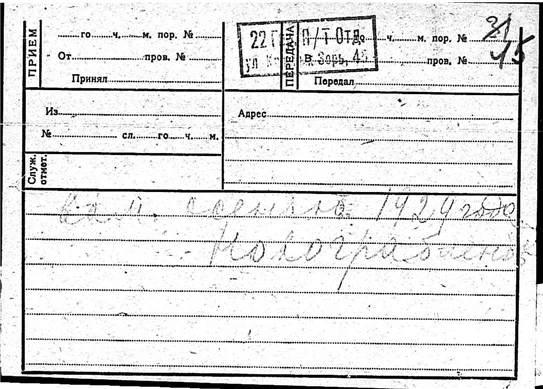 ПРИЕМ
го ч. м. пор. №
От пров. №
Принял
22 П/Т Отд.
ул. Зорь, 45
ПЕРЕДАЧА
го ч. м. пор. № 31
пров. № 45
Передал
Из
№ сл. го ч. м.
Адрес
Служ. отмет.
осенью 1929 года
Новограбленов